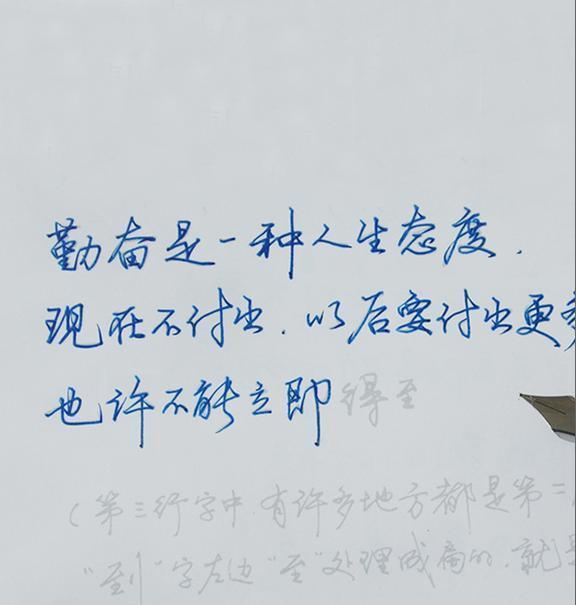 勤奋是一种人生态度.
现在不付出.以后要付出更多
也许不能立即得至
(第三行字中,有许多地方都是第二
"到"字左边"至"处理成扁的.就是